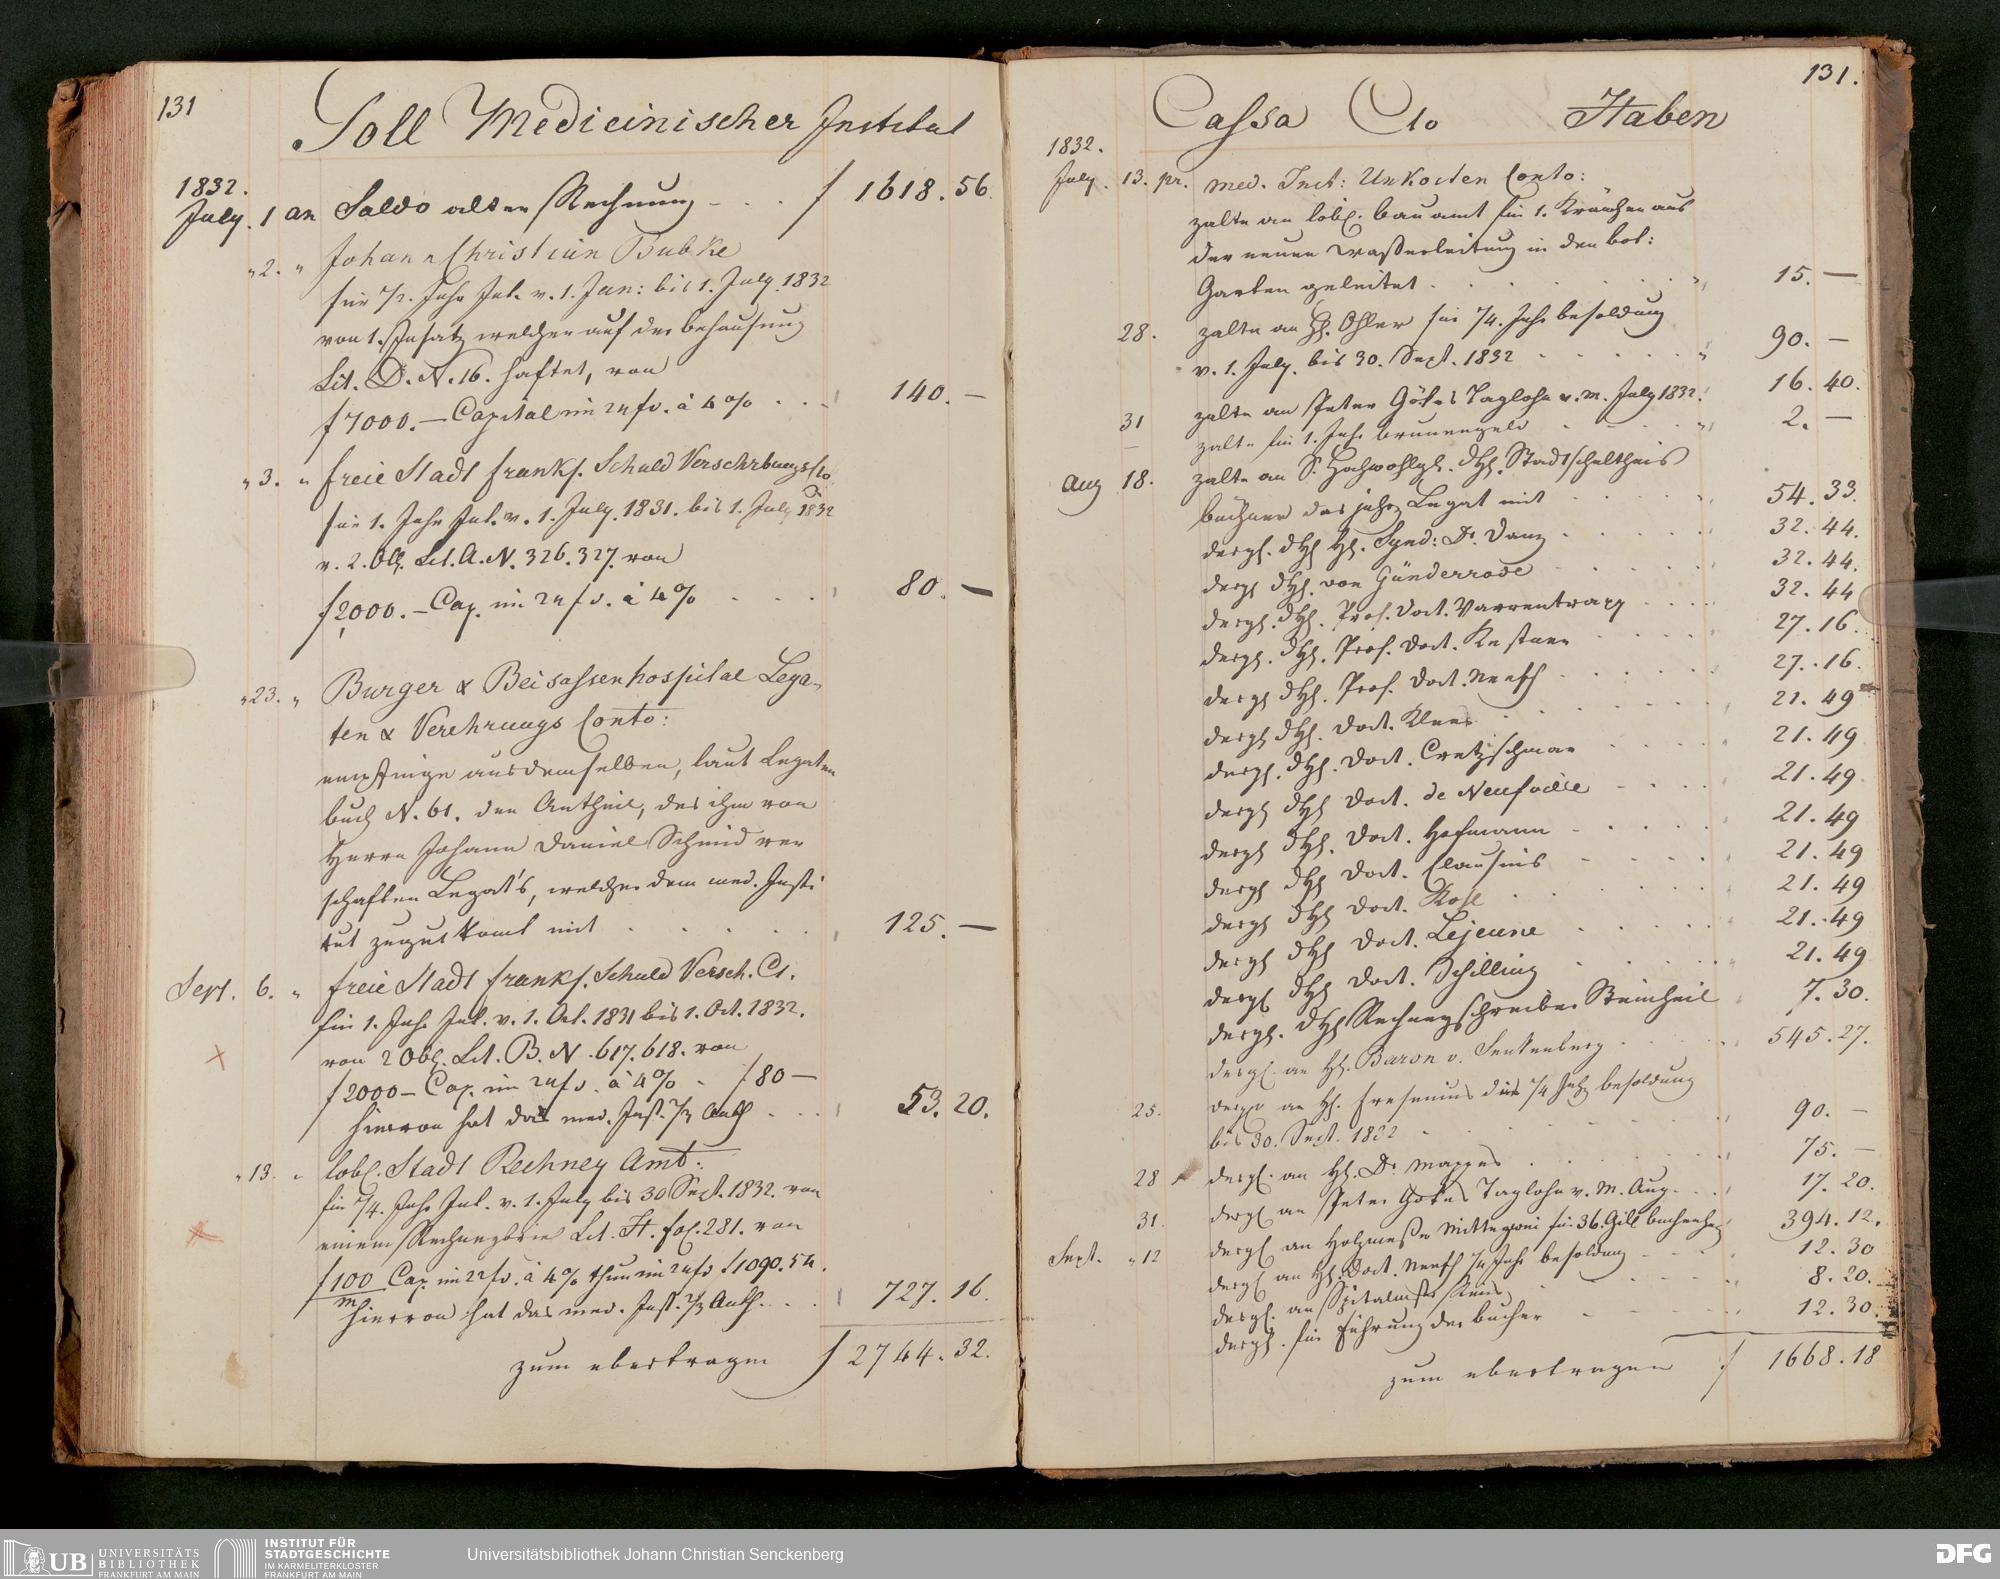 131
Soll Medicinischer Institut
1832.
July. 1 an Saldo alter Rechnung - . . f 1618.56.
"2. " Johann Christian Bubke
für 1/2. Jahr Int. v. 1. Jan: bis 1. July. 1832
von 1. Insatz welcher auf der behausung
Lit. D. N. 16. haftet, von
f 7000.— Capital im 24 fs. à 4% . . . 140.—
"3. " freie Stadt frankf. Schuld Verschrbungs Cto
für 1. Jahr Int. v. 1. July. 1831. bis 1. July 1832
v. 2. Obl. Lit. A. N. 326. 327. von
f 2,000.— Cap. im 24 fs. à 4% . . . 80.—
"23. " Burger & Beisassenhospital Lega-
ten & Verehrungs Conto:
empfinge aus demselben, laut Legaten
buch N. 61. den Antheil, des ihm von
Herrn Johann Daniel Schmid ver
schafften Legat's, welcher dem med. Insti
tut zugut komt mit . . . . . 125.—
Sept. 6. " freie Stadt frankf. Schuld Versch. Ct.
für 1. Jahr Int. v. 1. Oct. 1831 bis 1. Oct. 1832.
von 2 Obl. Lit. B. N. 617. 618. von
f 2000— Cap. im 24 fs. à 4% . f 80—
hiervon hat das med. Inst. 2/3 Anth . . . 53. 20.
"13. " löbl. Stadt Rechney Amt:
für 1/4. Jahr Int. v. 1. July bis 30 Sept. 1832. von
einem Rechneybrief Lit. H. fol. 281. von
f 100/m Cap. im 22 fs. à 4% thun im 24 fs f 1090. 54.
hiervon hat das med. Inst. 2/3 Anth. . . . 727. 16.
zum ubertragen f 2744. 32.
131.
Cassa Cto Haben
1832.
July. 13. pr. med. Inst: Unkosten Conto:
zalte an löbl. bauamt für 1. Kränchen aus
der neuen Wasserleitung in den bot:
Garten geleitet . . . . . . 15.—
28. zalte an H. Ohler für 1/4. Jahr besoldung
v. 1. July. bis 30. Sept. 1832 . . . . . 90.—
31 zalte an Peter Götes Taglohn v. m. July 1832. 16. 40.
— zalte für 1. Jahr brunnengeld . . . . 2.—
Aug 18. zalte an S. Hochwohlgb. dH. Stadtschultheis
büchner das jahrl Legat mit . . . . 54. 33.
dergl. dH. H. Synd: Dr. Danz . . . . . 32. 44.
dergl dH. von Günderrode . . . . . 32. 44.
dergl. dH. Prof. Doct. Varrentrapp . . . . 32. 44
dergl. dH. Prof. Doct. Kestner . . . . 27. 16.
dergl dH. Prof. Doct. Neeff . . . . . 27. 16.
dergl dH. Doct. Kloss . . . . . . 21. 49
dergl. dH. Doct. Cretzschmar . . . . 21. 49
dergl dH. Doct. de Neufville . . . . 21. 49.
dergl dH. Doct. Hofmann . . . . . 21. 49
dergl dH. Doct. Clausnis . . . . 21. 49
dergl dH. Doct. Rose . . . . . . 21. 49
dergl dH. Doct. Lejeune . . . . . 21. 49
dergl dH. Doct. Schilling . . . . . 21. 49
dergl. dH. Rechneyschreiber Steinheil 7. 30.
dergl. an H. Baron v. Senkenberg . . . . 545. 27.
25. dergl an H. Fresenius die 1/4 Jahr besoldung
bis 30. Sept. 1832 . . . . . . . 90.—
28 dergl. an H. Dr. Mappes . . . . . . 75.—
31. dergl an Peter Götes Taglohn v. M. Aug. . . . 17. 20.
Sept. "12 dergl an Holzmesser Mittegwei für 36. Gilb buchenholz 394. 12.
dergl an H. Doct. Neeff 1/4 Jahr besoldung . . . 12. 30
dergl. an Spitalmstr Reus . . . . . 8. 20.
dergl. für führung der bücher . . . . . 12. 30.
zum ubertragen f 1668. 18
UB UNIVERSITÄTS
BIBLIOTHEK
FRANKFURT AM MAIN
INSTITUT FÜR
STADTGESCHICHTE
IM KARMELITERKLOSTER
FRANKFURT AM MAIN
Universitätsbibliothek Johann Christian Senckenberg
DFG